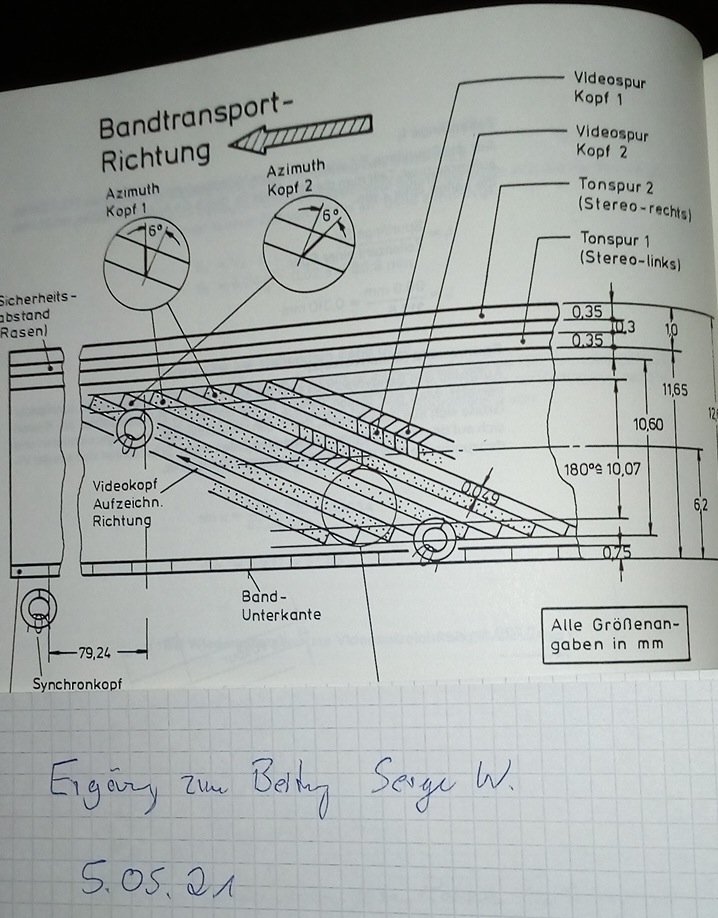 Bandtransport-
Richtung
Azimuth
Kopf 1
6°
Azimuth
Kopf 2
6°
Videospur
Kopf 1
Videospur
Kopf 2
Tonspur 2
(Stereo-rechts)
Tonspur 1
(Stereo-links)
Sicherheits-
abstand
(Rasen)
0,35
0,3
0,35
1,0
11,65
10,60
180°≙ 10,07
6,2
0,049
0,75
Videokopf
Aufzeichn.
Richtung
Band-
Unterkante
79,24
Synchronkopf
Alle Größenan-
gaben in mm
zum Serge W.
5.05.21